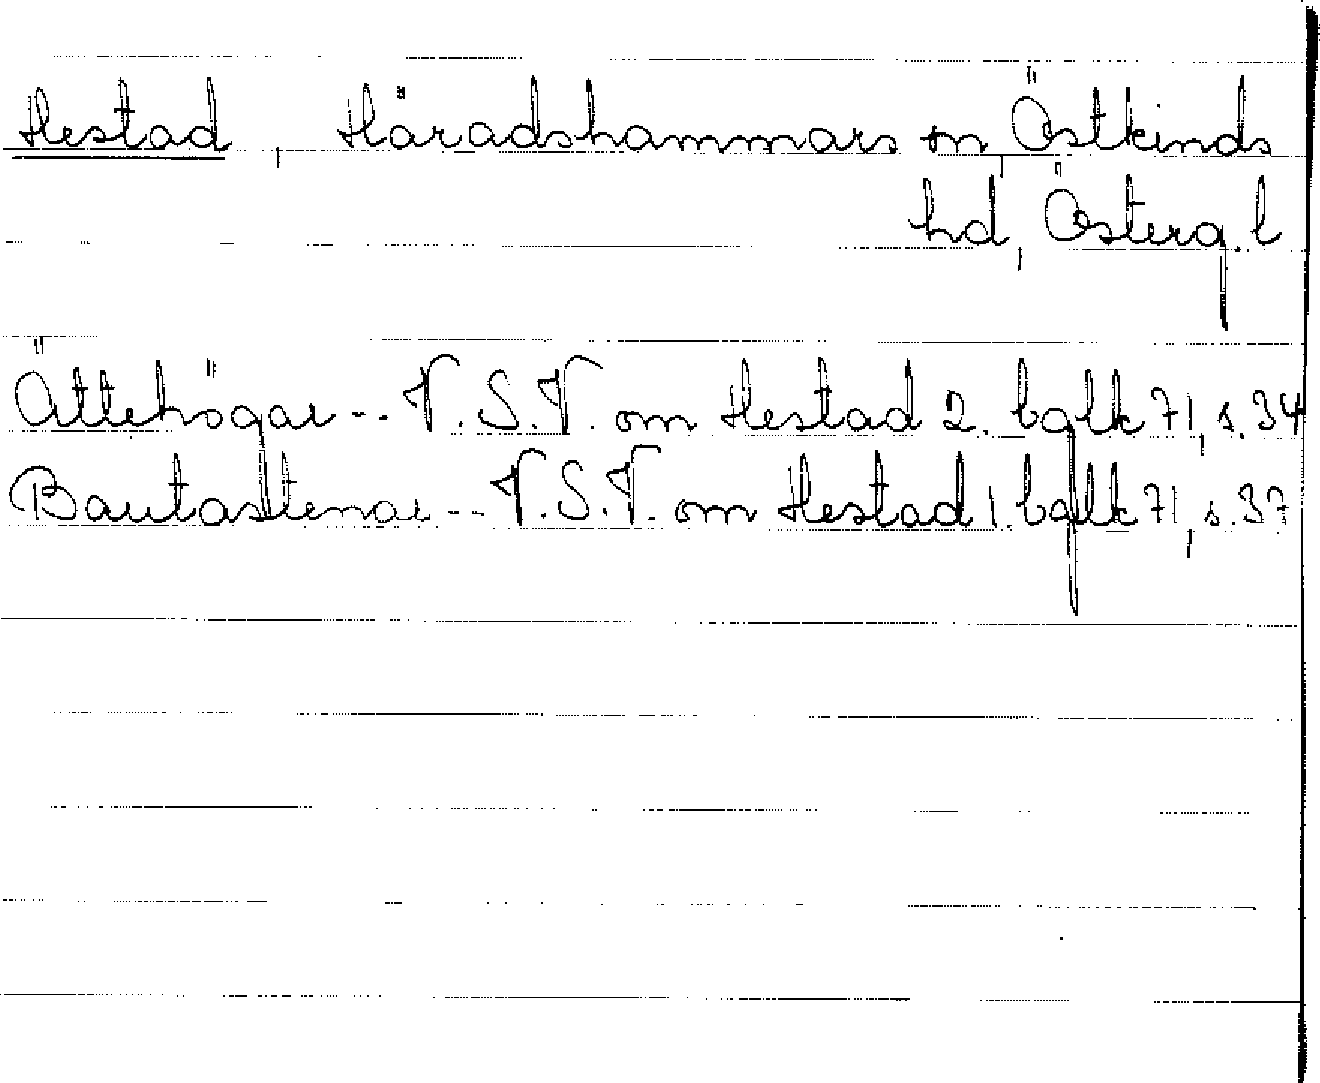 Hestad, Häradshammars sn, Östkinds
hd, Österg. l
Ättehögar -- V.S.V. om Hestad 2. bglk 71, s. 34
Bautastenar -- V.S.V. om Hestad 1. bglk 71, s. 37